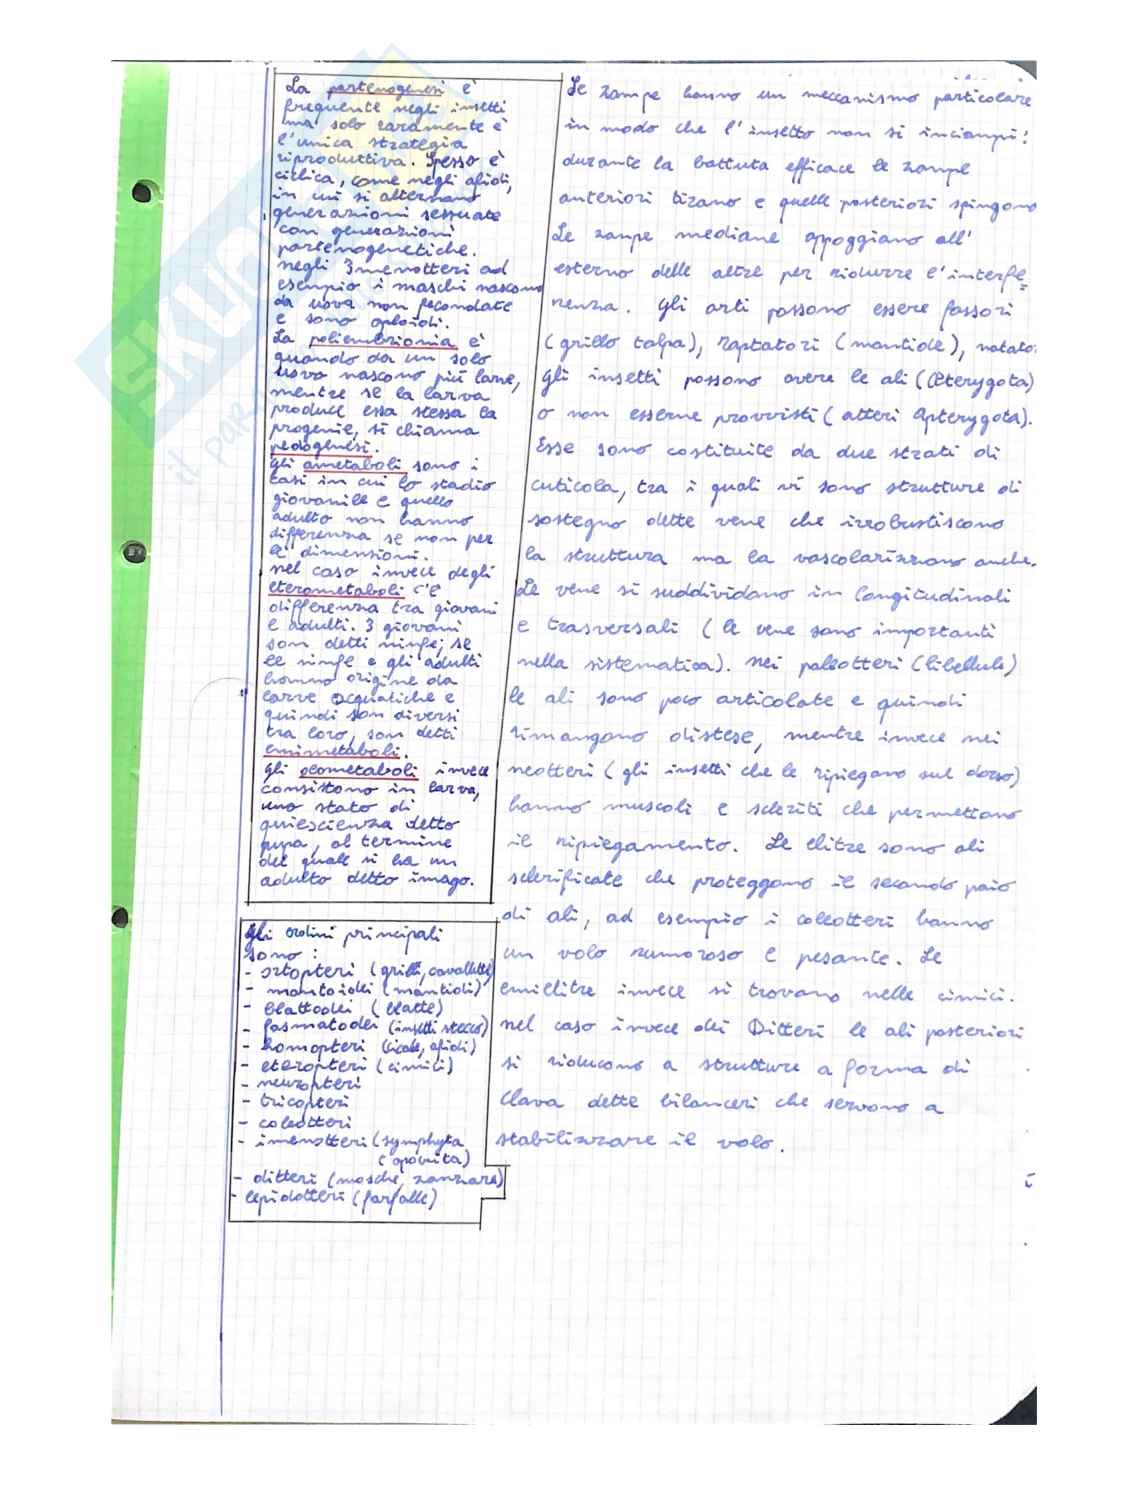 La partenogenesi è
frequente negli insetti
ma solo raramente è
l'unica strategia
riproduttiva. Spesso è
ciclica, come negli afidi,
in cui si alternano
generazioni sessuate
con generazioni
partenogenetiche.
negli Imenotteri ad
esempio i maschi nascono
da uova non fecondate
e sono aploidi.
La poliembrionia è
quando da un solo
uovo nascono più larve,
mentre se la larva
produce essa stessa la
progenie, si chiama
pedogenesi.
gli ametaboli sono i
casi in cui lo stadio
giovanile e quello
adulto non hanno
differenza se non per
le dimensioni.
nel caso invece degli
eterometaboli c'è
differenza tra giovani
e adulti. I giovani
son detti ninfe; se
le ninfe e gli adulti
hanno origine da
larve acquatiche e
quindi son diversi
tra loro, son detti
emimetaboli.
gli olometaboli invece
consistono in larva,
uno stato di
quiescienza detto
pupa, al termine
del quale si ha un
adulto detto imago.
gli ordini principali
sono:
- ortopteri (grilli, cavallette)
- mantoidei (mantidi)
- blattodei (blatte)
- fasmatodei (insetti stecco)
- homopteri (cicale, afidi)
- eteropteri (cimici)
- neuropteri
- tricopteri
- coleotteri
- imenotteri (symphyta
e apocrita)
- ditteri (mosche, zanzare)
- lepidotteri (farfalle)
Le zampe hanno un meccanismo particolare
in modo che l'insetto non si inciampi:
durante la battuta efficace le zampe
anteriori tirano e quelle posteriori spingono
Le zampe mediane appoggiano all'
esterno delle altre per ridurre l'interfe=
renza. gli arti possono essere fossori
(grillo talpa), raptatori (mantide), natato
gli insetti possono avere le ali (Pterygota)
o non esserne provvisti (atteri Apterygota).
Esse sono costituite da due strati di
cuticola, tra i quali vi sono strutture di
sostegno dette vene che irrobustiscono
la struttura ma la vascolarizzano anche.
Le vene si suddividano in longitudinali
e trasversali (le vene sono importanti
nella sistematica). nei paleotteri (libellule)
le ali sono poco articolate e quindi
rimangono distese, mentre invece nei
neotteri (gli insetti che le ripiegano sul dorso)
hanno muscoli e scleriti che permettono
il ripiegamento. Le elitre sono ali
sclerificate che proteggono il secondo paio
di ali, ad esempio i coleotteri hanno
un volo rumoroso e pesante. Le
emielitre invece si trovano nelle cimici.
nel caso invece dei Ditteri le ali posteriori
si riducono a strutture a forma di
clava dette bilanceri che servono a
stabilizzare il volo.